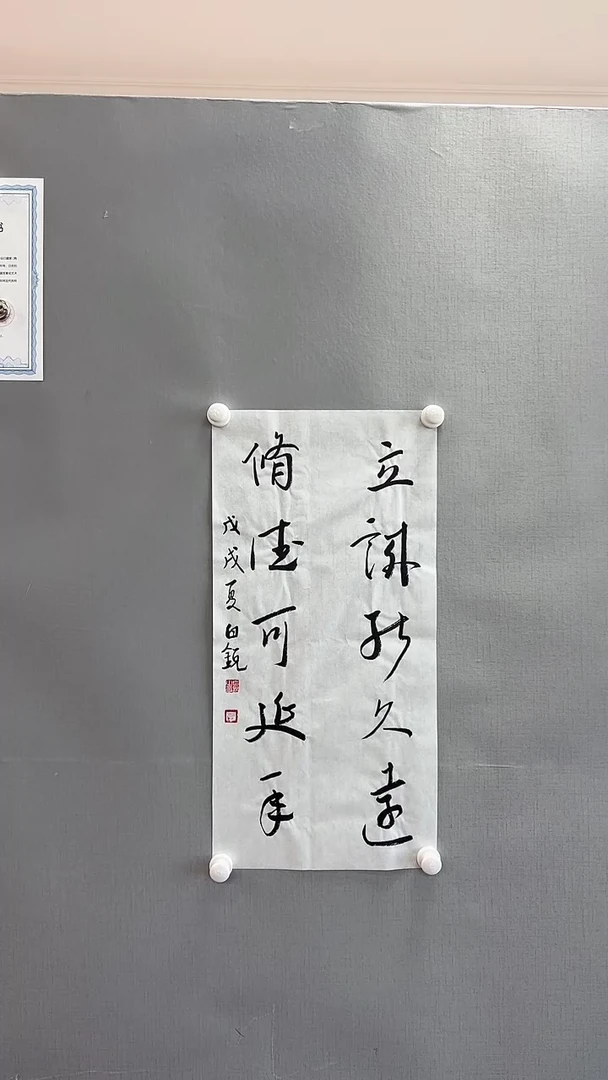 立誠能久遠
脩德可延年
戊戌夏白鋭